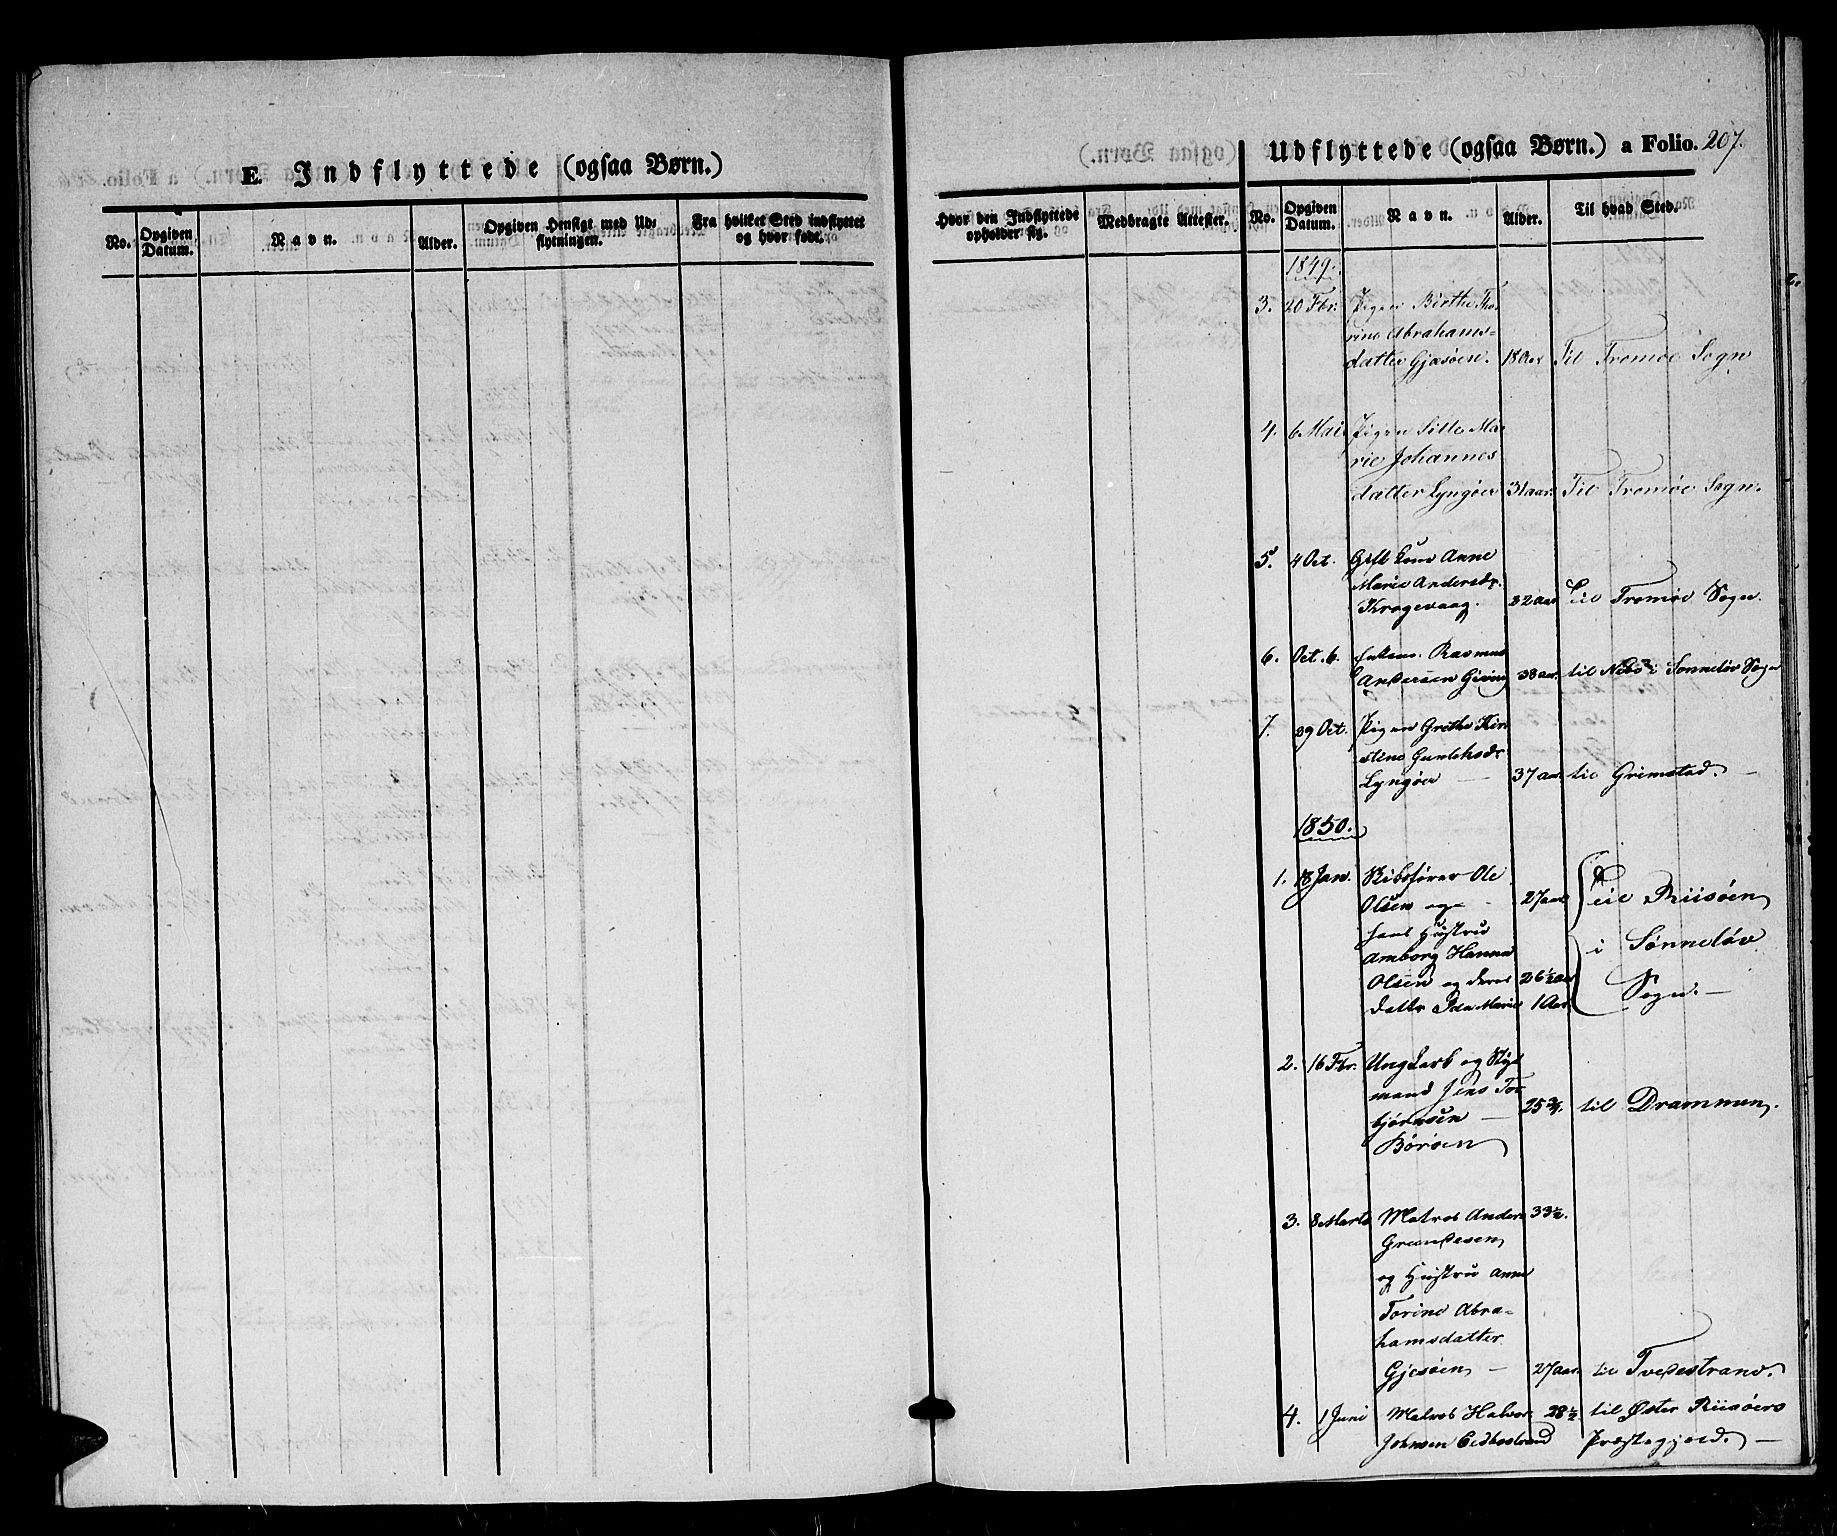 E. Indflyttede (ogsaa Børn.)
No. Opgiven Datum. Navn. Alder. Opgiven Hensigt med Udflytningen. Fra hvilket Sted indflyttet og hvor født.
Udflyttede (ogsaa Børn.) a Folio. 207.
Hvor den Indflyttede opholder sig. Medbragte Attester. No. Opgiven Datum. Navn. Alder. Til hvad Sted.
1849.
3. 20 Fbr. Pigen Birthe Tho
rine Abrahams-
datter Gjæsøen. 18 Aar Til Tromøe Sogn
4. 6 Mai Pigen Sille Ma
rie Johannes
datter Lyngøer 31 aar. Til Tromøe Sogn.
5. 4 Oct. Gift Kone Anne
Marie Andersdr.
Krogevaag. 32 aar Til Tromøe Sogn.
6. Oct. 6. Enkem. Rasmus
Andersen Giving 38 aar. til Næs i Sønneløv Sogn
7. 29 Oct. Pigen Grethe Kir
stine Gunlehsdr
Lyngøer — 37 aar. til Grimstad. —
1850.
1. 18 Jan. Skibsfører Ole
Olsen og 27 aar Til Riisøen
hans Hustru i Sønneløv
Amborg Hanne
Olsen og deres 26½ aar Sogn. —
datter Ida Marie 1 Aar.
2. 16 Fbr. Ungkarl og Styr
mand Jens Tor
bjørnsen — 25 ¾. til Drammen.
Børøen
3. 8 Marts Matros Anders 33½.
Gründesen
og Hustru Anne
Torine Abra-
hamsdatter
Gjesøen — 27 aar. til Tvedestrand.
4. 1 Juni Matros Halvor 28½ til Øster Riisøers
Johnsen Præstegjeld. —